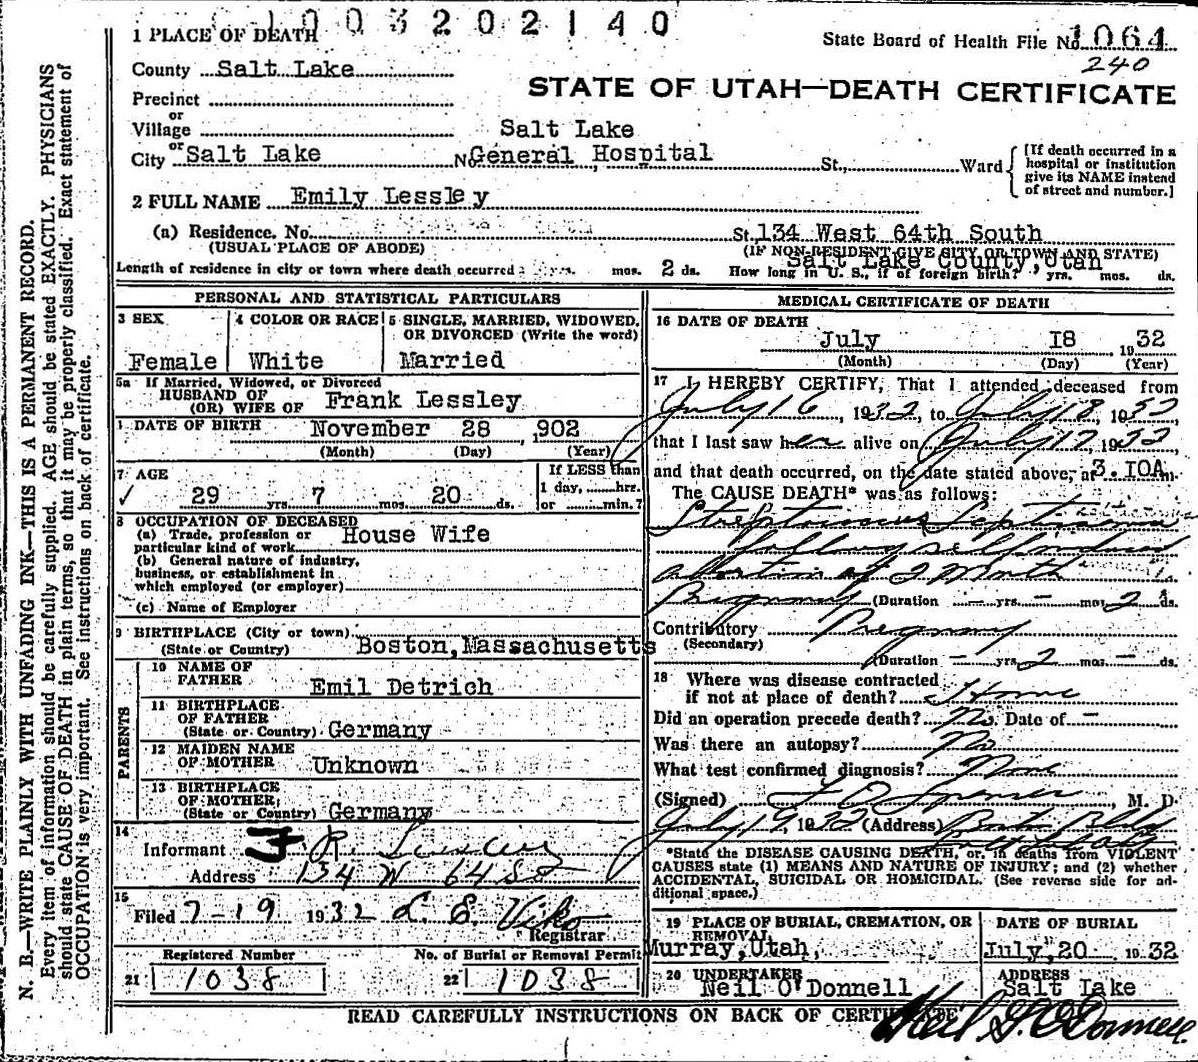 1003202140
1 PLACE OF DEATH
State Board of Health File No. 1064
240
County Salt Lake
STATE OF UTAH—DEATH CERTIFICATE
Precinct
or
Village
Salt Lake
City or Salt Lake No. General Hospital St., Ward
[If death occurred in a hospital or institution give its NAME instead of street and number.]
2 FULL NAME Emily Lessley
(a) Residence. No. St. 134 West 64th South
(USUAL PLACE OF ABODE) (IF NON-RESIDENT GIVE CITY OR TOWN AND STATE)
Salt Lake County, Utah
Length of residence in city or town where death occurred yrs. mos. 2 ds. How long in U. S., if of foreign birth? yrs. mos. ds.
PERSONAL AND STATISTICAL PARTICULARS
3 SEX
Female
4 COLOR OR RACE
White
5 SINGLE, MARRIED, WIDOWED, OR DIVORCED (Write the word)
Married
5a If Married, Widowed, or Divorced
HUSBAND OF
(OR) WIFE OF Frank Lessley
DATE OF BIRTH November 28 ,1902
(Month) (Day) (Year)
7 AGE
29 yrs. 7 mos. 20 ds.
If LESS than
1 day, hrs.
or min.?
8 OCCUPATION OF DECEASED
(a) Trade, profession or particular kind of work House Wife
(b) General nature of industry, business, or establishment in which employed (or employer)
(c) Name of Employer
9 BIRTHPLACE (City or town)
(State or Country) Boston, Massachusetts
PARENTS
10 NAME OF FATHER Emil Detrich
11 BIRTHPLACE OF FATHER
(State or Country) Germany
12 MAIDEN NAME OF MOTHER Unknown
13 BIRTHPLACE OF MOTHER
(State or Country) Germany
14
Informant F. R. Lessley
Address 134 W 64 So
15
Filed 7-19 1932 L. E. Viko
Registrar
Registered Number
21 1038
No. of Burial or Removal Permit
22 1038
MEDICAL CERTIFICATE OF DEATH
16 DATE OF DEATH
July 18 , 1932
(Month) (Day) (Year)
17 I HEREBY CERTIFY, That I attended deceased from
July 16, 1932, to July 18, 1932
that I last saw her alive on July 17, 1932
and that death occurred, on the date stated above, at 3.10A m.
The CAUSE DEATH* was as follows:
Streptococcus Septicemia
following self induced
abortion of 2 Month
Pregnancy (Duration — yrs. — mos. 2 ds.
Contributory Pregnancy
(Secondary)
(Duration — yrs. 2 mos. — ds.
18 Where was disease contracted
if not at place of death? Home
Did an operation precede death? No. Date of —
Was there an autopsy? No
What test confirmed diagnosis? None
(Signed) , M. D.
July 19, 1932 (Address)
*State the DISEASE CAUSING DEATH, or, in deaths from VIOLENT
CAUSES state (1) MEANS AND NATURE OF INJURY; and (2) whether
ACCIDENTAL, SUICIDAL OR HOMICIDAL. (See reverse side for additional space.)
19 PLACE OF BURIAL, CREMATION, OR REMOVAL
Murray, Utah,
DATE OF BURIAL
July, 20 1932
20 UNDERTAKER
Neil O'Donnell
ADDRESS
Salt Lake
READ CAREFULLY INSTRUCTIONS ON BACK OF CERTIFICATE
Neil G. O'Donnell
N. B.—WRITE PLAINLY WITH UNFADING INK—THIS IS A PERMANENT RECORD.
Every item of information should be carefully supplied. AGE should be stated EXACTLY. PHYSICIANS
should state CAUSE OF DEATH in plain terms, so that it may be properly classified. Exact statement of
OCCUPATION is very important. See instructions on back of certificate.